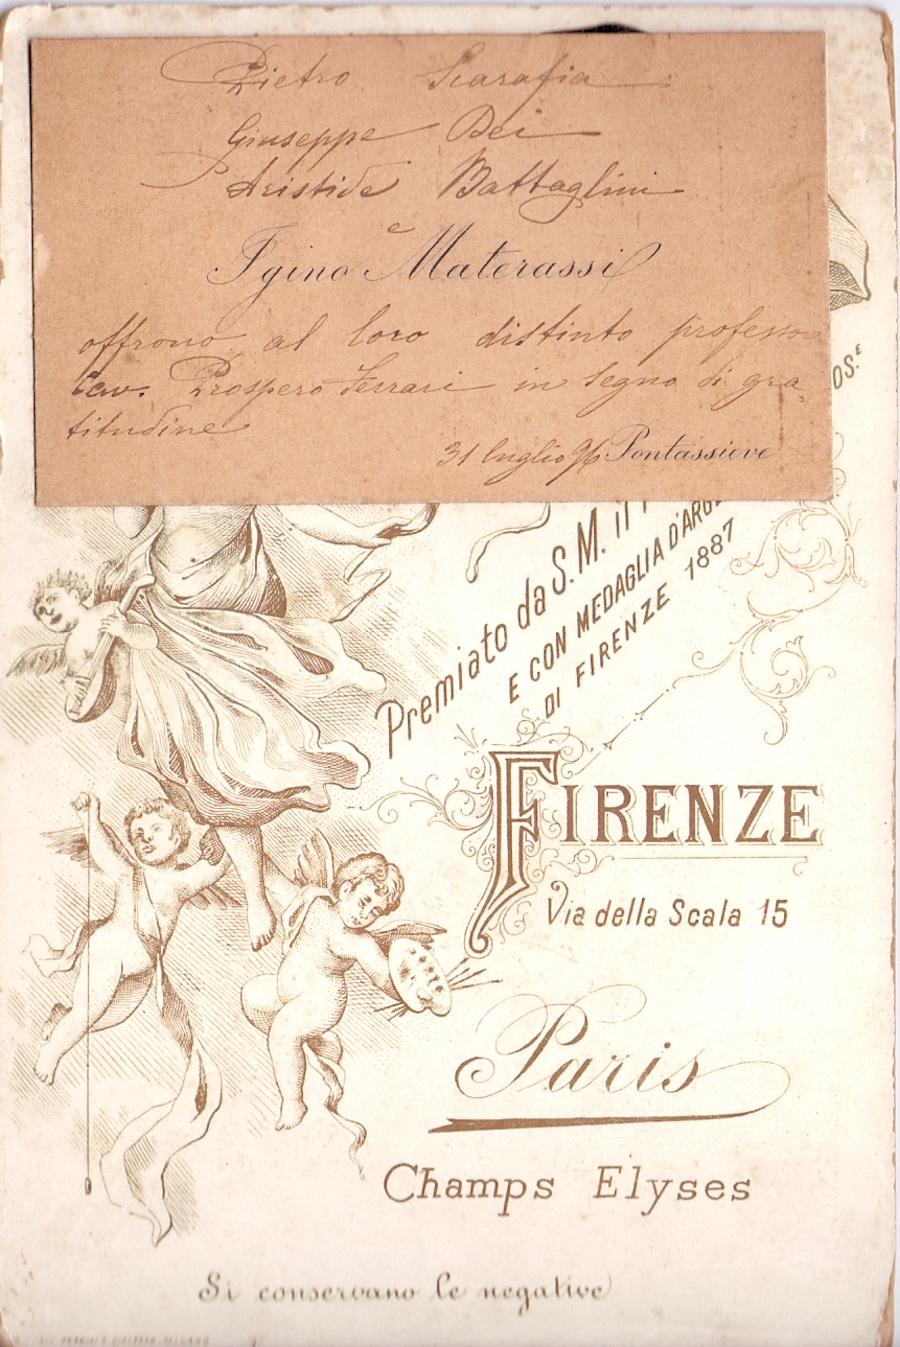 Pietro Scarafia
Giuseppe Dei
Aristide Battaglini
e
Igino Materassi
offrono al loro distinto professore
Cav. Prospero Ferrari in segno di gra
titudine
31 luglio 96 Pontassieve
OS.E
Premiato da S.M. il
E CON MEDAGLIA D'ARGE
DI FIRENZE 1887
FIRENZE
Via della Scala 15
Paris
Champs Elyses
Si conservano le negative
MILANO